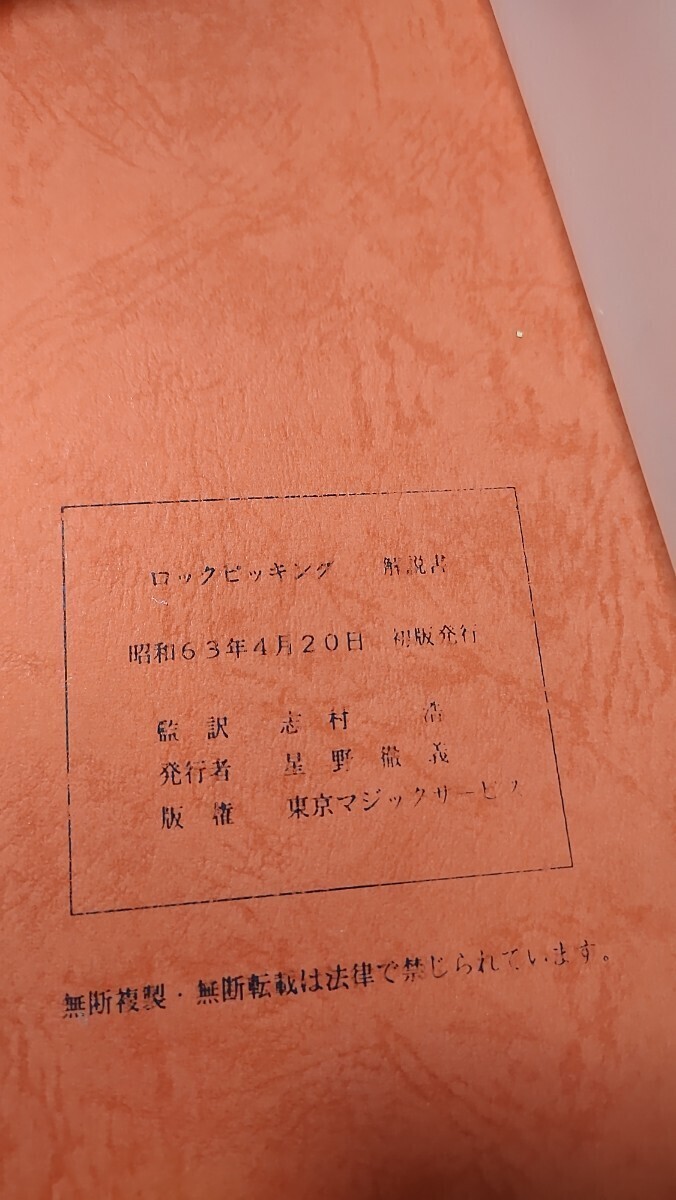 ロックピッキング　解説書
昭和63年4月20日　初版発行
監訳　志村　浩
発行者　星野徹義
版権　東京マジックサービス
無断複製・無断転載は法律で禁じられています。